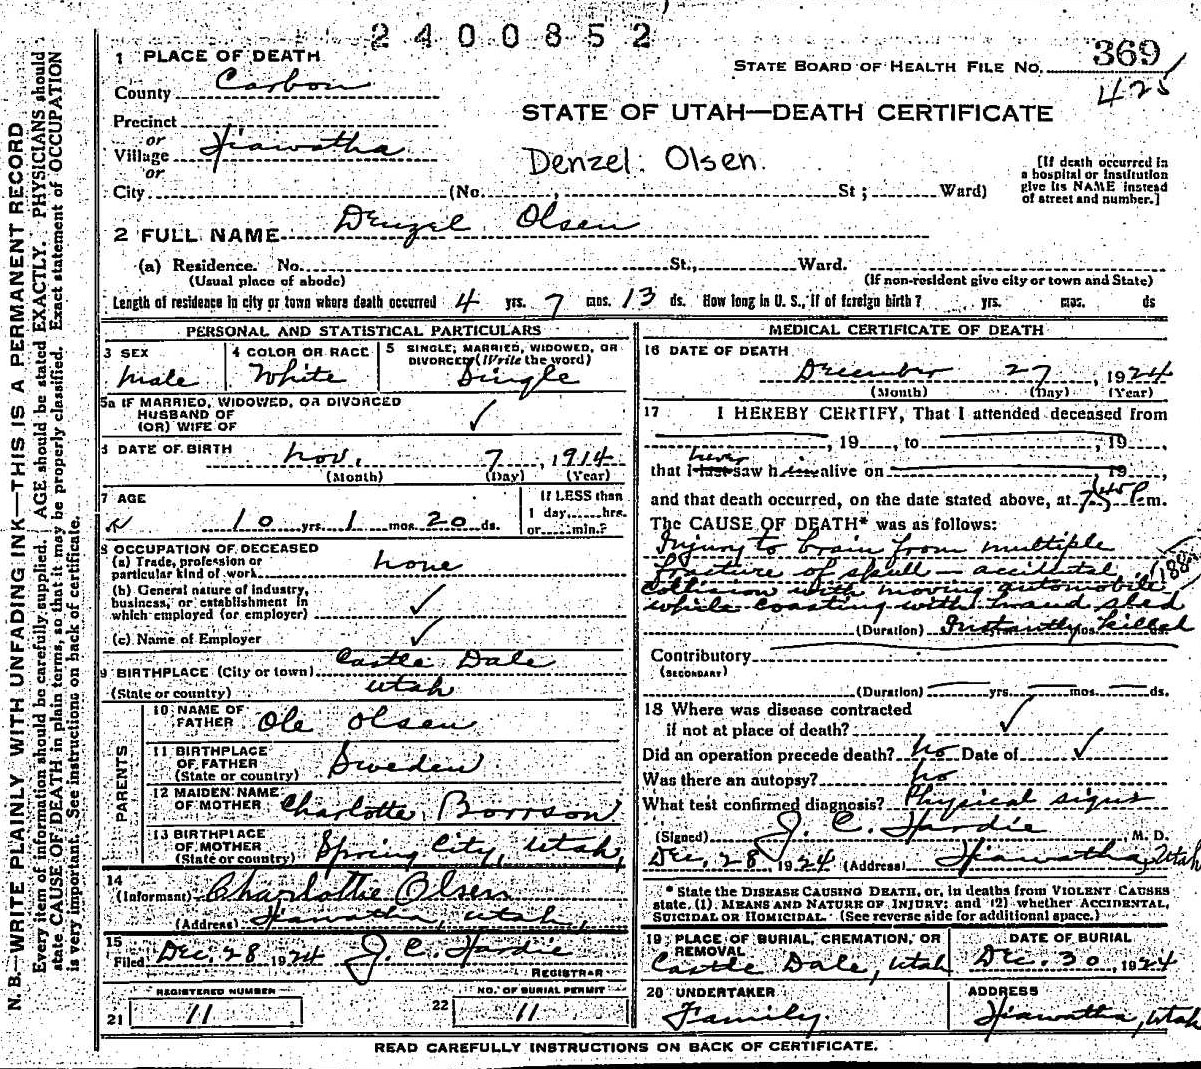 2400852
1 PLACE OF DEATH
STATE BOARD OF HEALTH FILE NO. 369
425
County Carbon
STATE OF UTAH—DEATH CERTIFICATE
Precinct
or
Village Hiawatha
or
Denzel Olsen.
[If death occurred in
a hospital or institution
give its NAME instead
of street and number.]
City (No. , St ; Ward)
2 FULL NAME Denzel Olsen
(a) Residence. No. St., Ward.
(Usual place of abode) (If non-resident give city or town and State)
Length of residence in city or town where death occurred 4 yrs. 7 mos. 13 ds. How long in U. S., if of foreign birth? yrs. mos. ds
PERSONAL AND STATISTICAL PARTICULARS
3 SEX
Male
4 COLOR OR RACE
White
5 SINGLE, MARRIED, WIDOWED, OR
DIVORCED (Write the word)
Single
5a IF MARRIED, WIDOWED, OR DIVORCED
HUSBAND OF
(OR) WIFE OF
6 DATE OF BIRTH
Nov. 7, 1914
(Month) (Day) (Year)
7 AGE
10 yrs. 1 mos. 20 ds.
If LESS than
1 day, hrs.
or min.?
8 OCCUPATION OF DECEASED
(a) Trade, profession or
particular kind of work none
(b) General nature of industry,
business, or establishment in
which employed (or employer)
(c) Name of Employer
9 BIRTHPLACE (City or town) Castle Dale
(State or country) Utah
PARENTS
10 NAME OF
FATHER Ole Olsen
11 BIRTHPLACE
OF FATHER
(State or country) Sweden
12 MAIDEN NAME
OF MOTHER Charlotte
13 BIRTHPLACE
OF MOTHER
(State or country) Spring City, Utah,
14
(Informant) Charlottie Olsen
(Address) Hiawatha, Utah,
15
Filed Dec. 28 1924 J. C. Hardie
REGISTRAR
REGISTERED NUMBER
21 11
NO. OF BURIAL PERMIT
22 11
MEDICAL CERTIFICATE OF DEATH
16 DATE OF DEATH
December 27, 1924
(Month) (Day) (Year)
17 I HEREBY CERTIFY, That I attended deceased from
, 19 , to , 19 ,
never
that I last saw him alive on 19 ,
and that death occurred, on the date stated above, at 7 45 P.m.
The CAUSE OF DEATH* was as follows:
Injury to brain from multiple
fracture of skull – accidental
collision with moving automobile
while coasting with hand sled
(Duration) Instantly killed
Contributory
(SECONDARY)
(Duration) yrs. mos. ds.
18 Where was disease contracted
if not at place of death?
Did an operation precede death? no Date of
Was there an autopsy? no
What test confirmed diagnosis? Physical signs
(Signed) J. C. Hardie M. D.
Dec. 28, 1924 (Address) Hiawatha, Utah
* State the DISEASE CAUSING DEATH, or, in deaths from VIOLENT CAUSES
state (1) MEANS AND NATURE OF INJURY; and (2) whether ACCIDENTAL,
SUICIDAL OR HOMICIDAL. (See reverse side for additional space.)
19 PLACE OF BURIAL, CREMATION, OR
REMOVAL
Castle Dale, Utah
DATE OF BURIAL
Dec. 30, 1924
20 UNDERTAKER
Family.
ADDRESS
Hiawatha, Utah
READ CAREFULLY INSTRUCTIONS ON BACK OF CERTIFICATE.
N. B.—WRITE PLAINLY WITH UNFADING INK—THIS IS A PERMANENT RECORD
Every item of information should be carefully supplied. AGE should be stated EXACTLY. PHYSICIANS should
state CAUSE OF DEATH in plain terms, so that it may be properly classified. Exact statement of OCCUPATION
is very important. See instructions on back of certificate.